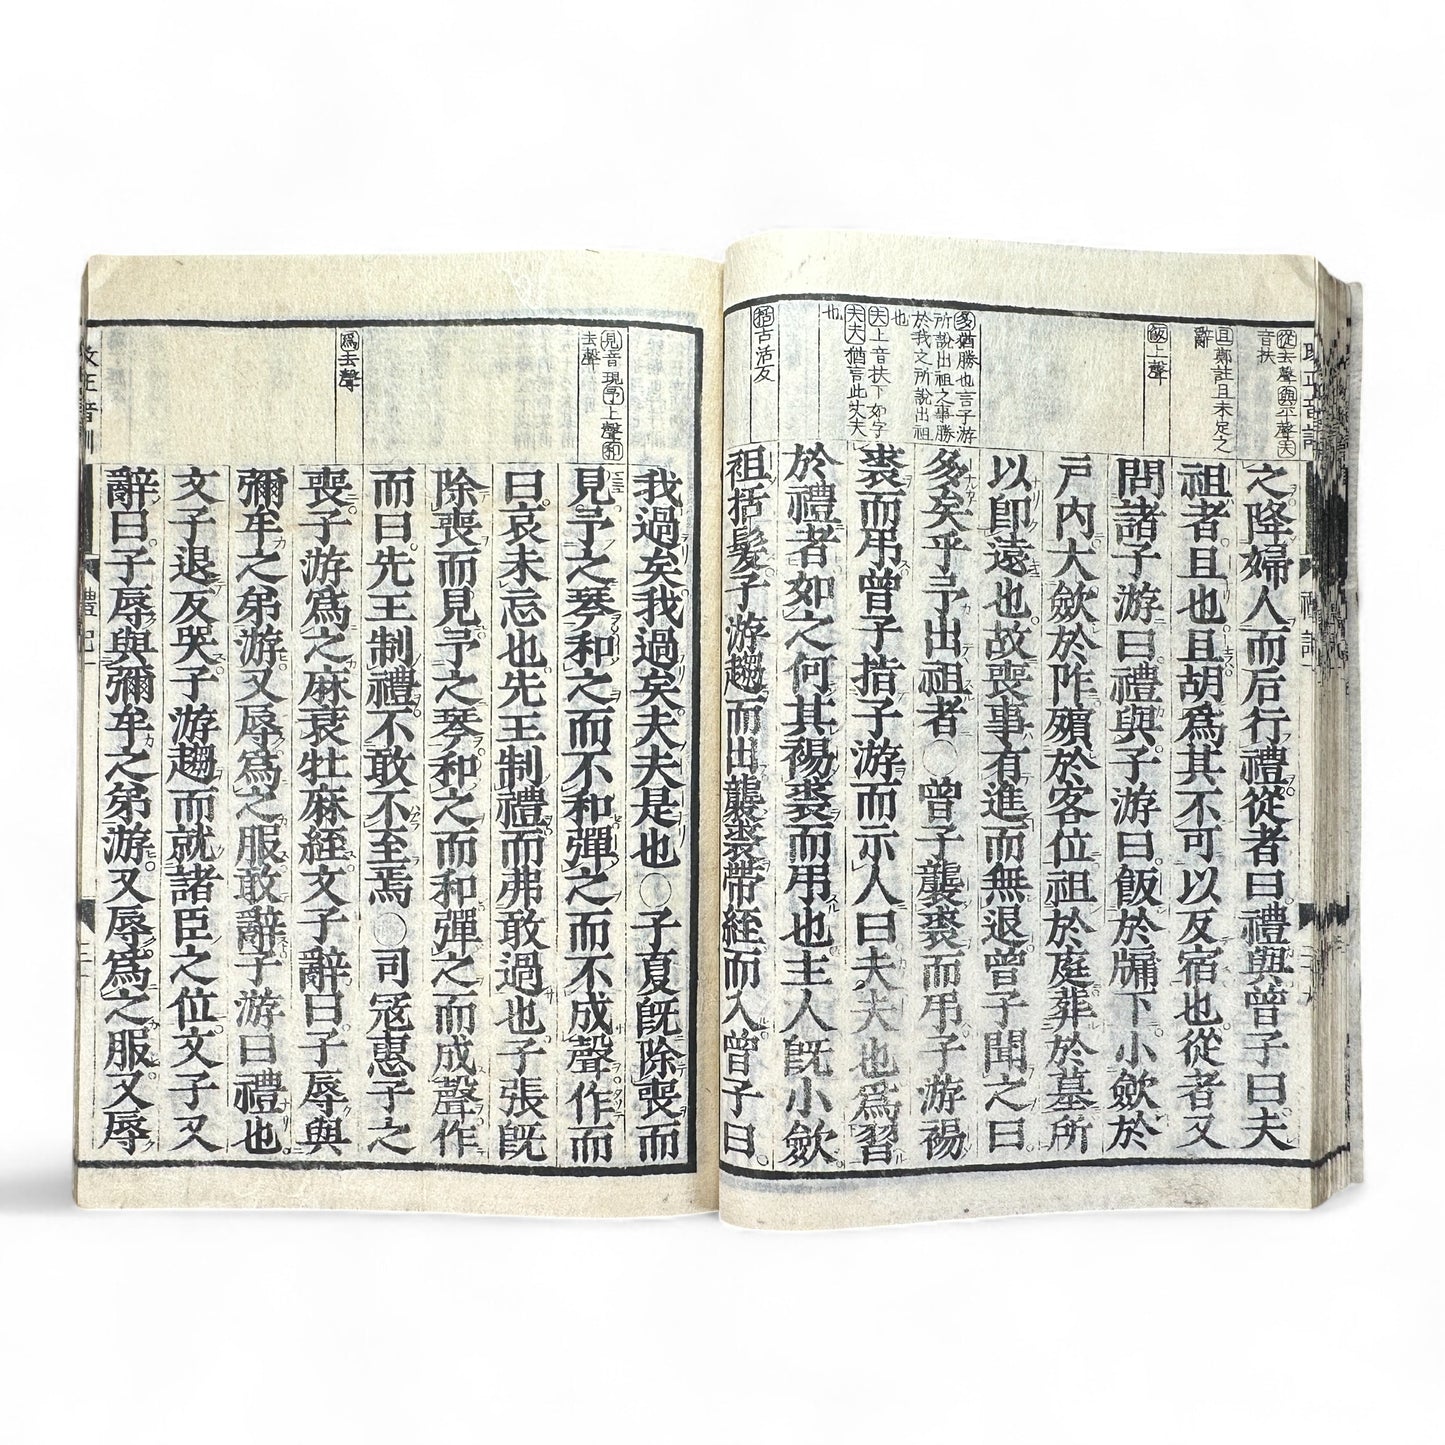 從去聲與平聲夫
音扶
且鄭註且未定之
辭
飯上聲
多猶勝也言子游
所說出祖之事勝
於我之所說出祖
也
夫上音扶下如字
夫夫猶言此丈夫
也
括古活反
之降婦人而后行禮從者曰禮與曾子曰夫
祖者且也且胡爲其不可以反宿也從者又
問諸子游曰禮與子游曰飯於牖下小斂於
戶內大斂於阼殯於客位祖於庭葬於墓所
以即遠也故喪事有進而無退曾子聞之曰
多矣乎予出祖者〇曾子襲裘而弔子游裼
裘而弔曾子指子游而示人曰夫夫也爲習
於禮者如之何其裼裘而弔也主人旣小斂
袒括髮子游趨而出襲裘帶絰而入曾子曰
見音現予上聲和
去聲
爲去聲
我過矣我過矣夫夫是也〇子夏旣除喪而
見予之琴和之而不和彈之而不成聲作而
曰哀未忘也先王制禮而弗敢過也子張旣
除喪而見予之琴和之而和彈之而成聲作
而曰先王制禮不敢不至焉〇司寇惠子之
喪子游爲之麻衰牡麻絰文子辭曰子辱與
彌牟之弟游又辱爲之服敢辭子游曰禮也
文子退反哭子游趨而就諸臣之位文子又
辭曰子辱與彌牟之弟游又辱爲之服又辱
禮記